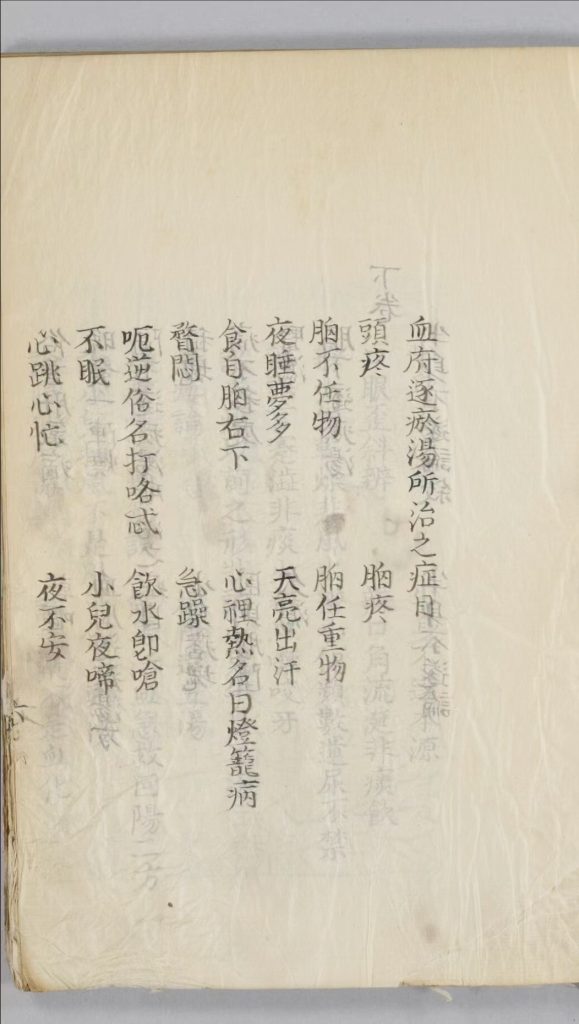 血府逐瘀湯所治之症目
頭疼 胸疼
胸不任物 胸任重物
夜睡夢多 天亮出汗
食自胸右下 心裡熱名曰燈籠病
瞀悶 急躁
呃逆俗名打咯忒 飲水卽嗆
不眠 小兒夜啼
心跳心忙 夜不安